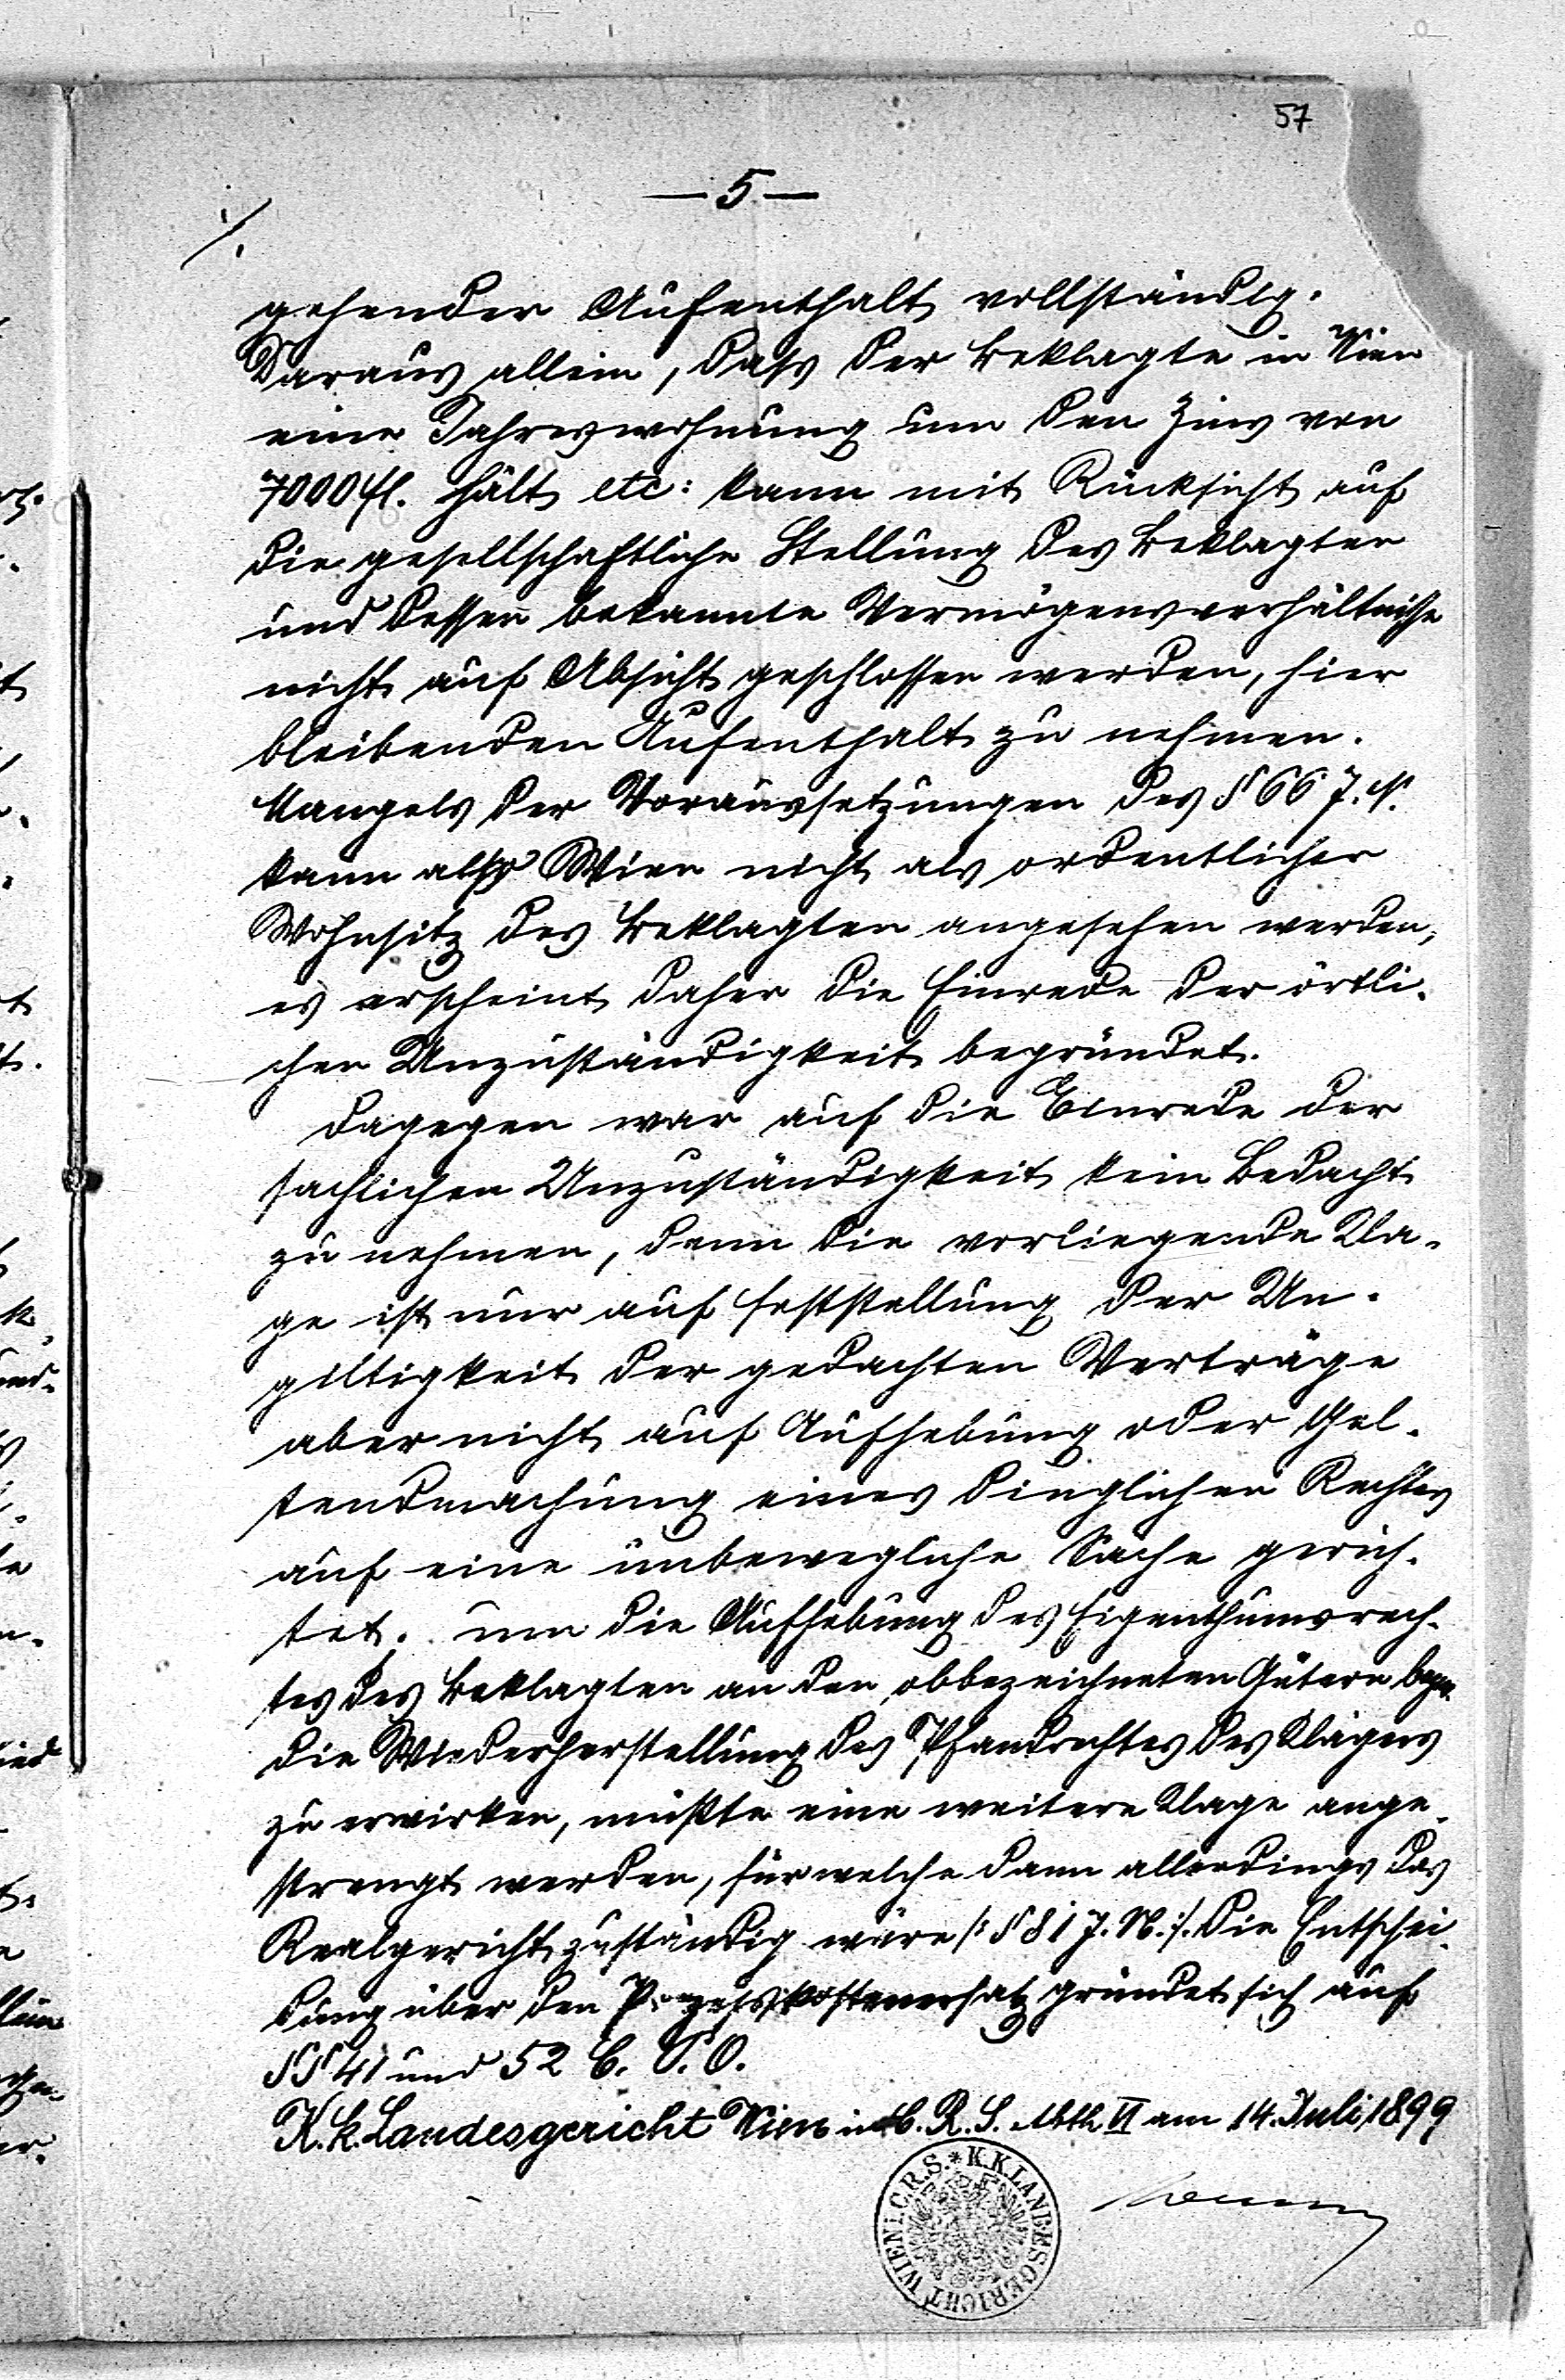 57
— 5 —
./.
gehender Aufenthalt vollständig.
Daraus allein, dass der Beklagte in Wien
eine Jahreswohnung um den Zins von
7000 fl. hält etc: kann mit Rücksicht auf
die gesellschaftliche Stellung des Beklagten
und dessen bekannte Vermögensverhältnisse
nicht auf Absicht geschlossen werden, hier
bleibenden Aufenthalt zu nehmen.
Mangels der Voraussetzungen des § 66 J. N.
kann also Wien nicht als ordentlicher
Wohnsitz des Beklagten angesehen werden,
es erscheint daher die Einrede der örtli-
chen Unzuständigkeit begründet.
Dagegen war auf die Einrede der
sachlichen Unzuständigkeit kein Bedacht
zu nehmen, denn die vorliegende Kla-
ge ist nur auf Feststellung der Un-
giltigkeit der gedachten Verträge
aber nicht auf Aufhebung oder Gel-
tendmachung eines dinglichen Rechtes
auf eine unbewegliche Sache gerich-
tet. um die Aufhebung des Eigenthumsrech-
tes des Beklagten an den obbezeichneten Gütern bezw.
die Wiederherstellung des Pfandrechtes des Klägers
zu erwirken, müßte eine weitere Klage ange-
strengt werden, für welche dann allerdings das
Realgericht zuständig wäre /: § 81 J. N. :/. Die Entschei-
dung über den Prozesskostenersatz gründet sich auf
§§ 41 und 52 C. P. O.
K. k. Landesgericht Wien in C. R. S. Abth. VI am 14. Juli 1899
K.K. LANDESGERICHT WIEN I.C.R.S. *